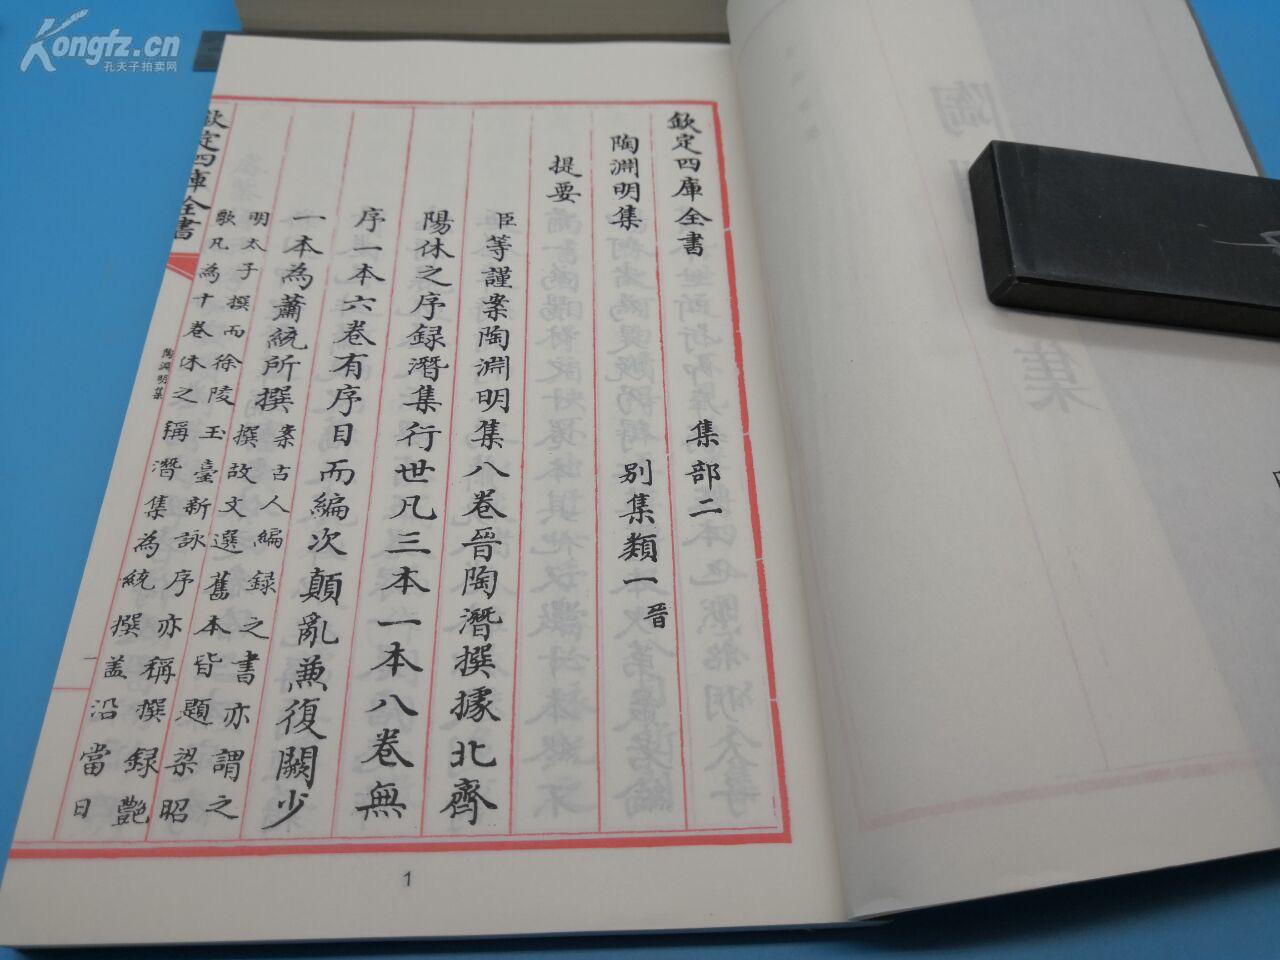 Kongfz.cn
孔夫子拍卖网
欽定四庫全書 集部二
陶淵明集 別集類一 晉
提要
臣等謹案陶淵明集八卷晉陶潛撰據北齊
陽休之序録潛集行世凡三本一本八卷無
序一本六卷有序目而編次顛亂兼復闕少
一本為蕭統所撰
案古人編録之書亦謂之
撰故文選舊本皆題梁昭
明太子撰而徐陵玉臺新詠序亦稱撰録艶
歌凡為十卷休之稱潛集為統撰盖沿當日
欽定四庫全書
陶淵明集
一
1